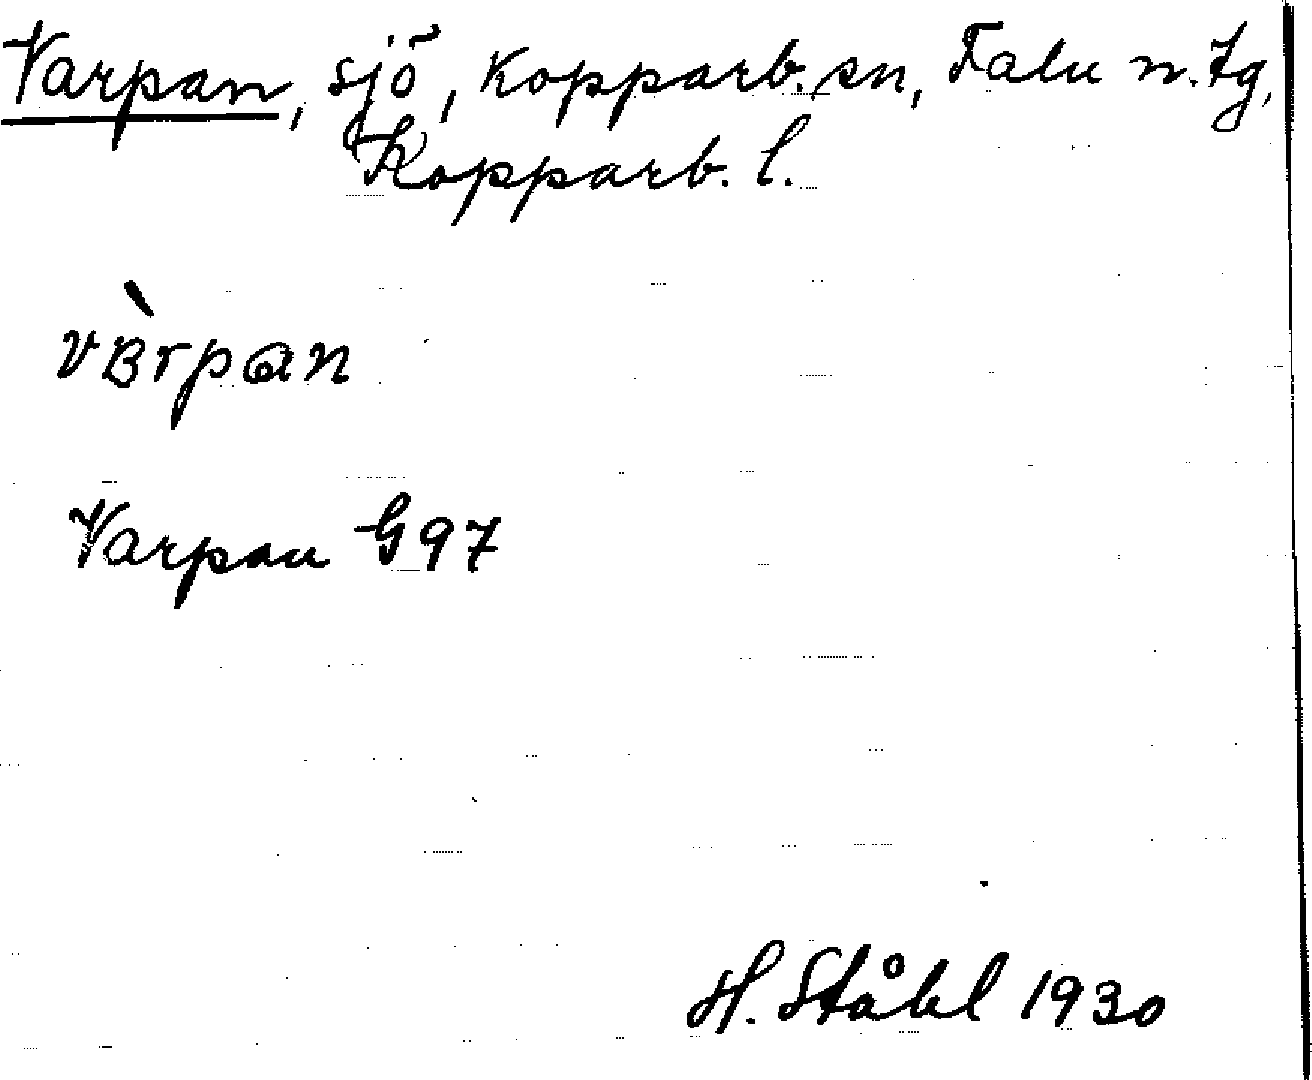 Varpan, sjö, Kopparb. sn, Falu n. tg,
Kopparb. l.
vɐ̀rpan
Varpan G97
H. Ståhl 1930